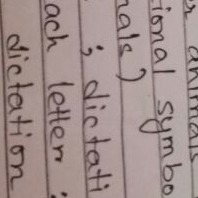 r animals
ional symbo
nals)
; dictati
ach letter :
dictation